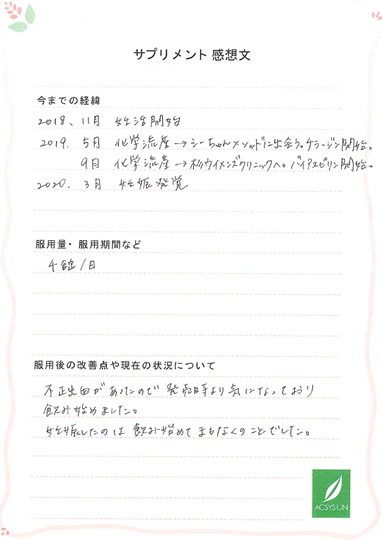 サプリメント 感想文
今までの経緯
2018. 11月 妊活開始
2019. 5月 化学流産→シーちゃんメソッドに出会う。ケラージン開始。
9月 化学流産→杉ウイメンズクリニックへ。バイアスピリン開始。
2020. 3月 妊娠発覚
服用量・服用期間など
4錠/日
服用後の改善点や現在の状況について
不正出血があったので発売時より気になっており
飲み始めました。
妊娠したのは飲み始めてまもなくのことでした。
ACSYSUN